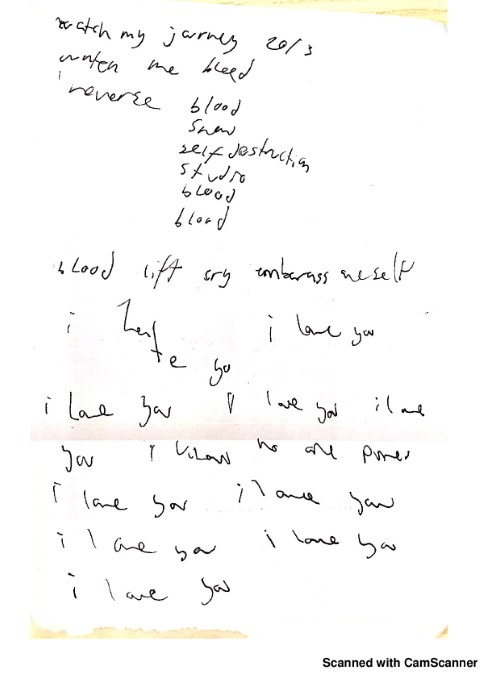 watch my jorney 2013
watch me bleed
reverse blood
snow
self destruction
studio
blood
blood
blood lift cry embarass meself
i hate you i love you
i love you I love you i love
you i know no one
i love you i love you
i love you i love you
i love you
Scanned with CamScanner